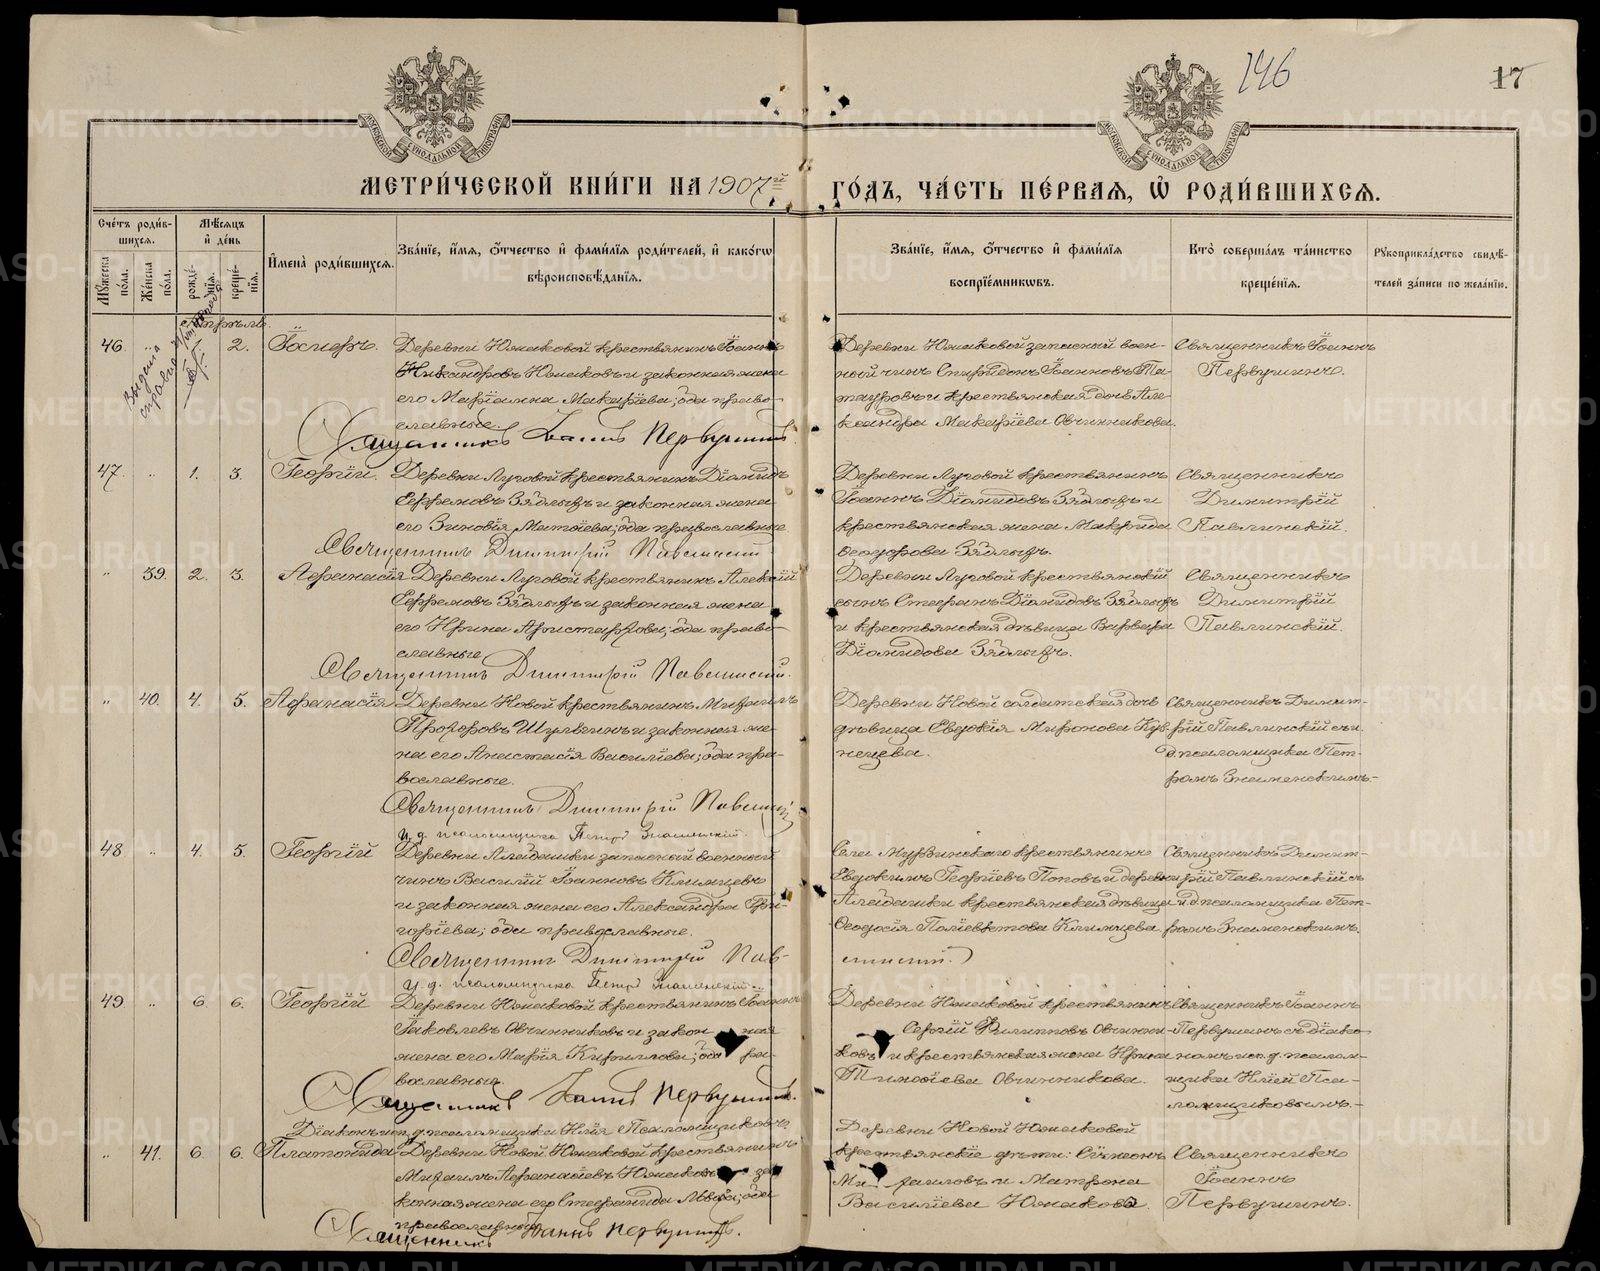 146
17
МЕТРИ́ЧЕСКОЙ КНИ́ГИ НА 1907й ГО́ДЪ, ЧА́СТЬ ПЕ́РВАЯ, Ѿ РОДИ́ВШИХСЯ.
Сче́тъ роди́в-
шихся.
Мѣ́сяцъ
и҆ де́нь
Мꙋ́жеска
по́ла.
Же́нска
по́ла.
рожде́-
нїя.
креще́-
нїя.
И҆мена̀ роди́вшихся.
Зва́нїе, и҆́мя, ѻ҆́тчество и҆ фами́лїя роди́телей, и҆ како́гѡ
вѣроисповѣ́данїя.
Зва́нїе, и҆́мя, ѻ҆́тчество и҆ фами́лїя
воспрїе́мникѡвъ.
Кто̀ соверша́лъ та́инство
креще́нїя.
Рꙋкоприкла́дство свидѣ́-
телей за́писи по жела́нїю.
46. " 2. Іосифъ.
Деревни Южаковой крестьянинъ Іоаннъ
Никандровъ Южаковъ и законная жена
его Маріамна Макаріева; оба право-
славные.
Священникъ Іоаннъ Первушинъ.
Деревни Южаковой запасный воен-
ный чинъ Спиридонъ Іоанновъ Та-
тауровъ и крестьянская дочь Але-
ксандра Макаріева Овчинникова.
Священникъ Іоаннъ
Первушинъ.
47. " 1. 3. Георгій.
Деревни Луговой крестьянинъ Діомидъ
Ефремовъ Зяблыхъ и законная жена
его Зиновія Матѳіева; оба православные
Священникъ Димитрій Павлинскій
Деревни Луговой крестьянинъ
Іоаннъ Діомидовъ Зяблыхъ и
крестьянская жена Макрида
Зяблыхъ.
Священникъ
Димитрій
Павлинскій.
" 39. 2. 3. Аѳанасія
Деревни Луговой крестьянинъ Алексій
Ефремовъ Зяблыхъ и законная жена
его Ирина Аристархова; оба право-
славные
Священникъ Димитрій Павлинскій.
Деревни Луговой крестьянскій
сынъ Стефанъ Діомидовъ Зяблыхъ
и крестьянская дѣвица Варвара
Діомидова Зяблыхъ.
Священникъ
Димитрій
Павлинскій.
" 40. 4. 5. Аѳанасія
Деревни Новой крестьянинъ Михаилъ
Прохоровъ Шульгинъ и законная же-
на его Анастасія Василіева; оба пра-
вославные.
Священникъ Димитрій Павлинскій
и. д. псаломщика Петръ Знаменскій.
Деревни Новой солдатская дочь
дѣвица Евдокія Миронова Куз-
нецова.
Священникъ Димит-
рій Павлинскій съ и.
д. псаломщика Пет-
ромъ Знаменскимъ.
48. " 4. 5. Георгій
Деревни запасный военный
чинъ Василій Іоанновъ Климцевъ
и законная жена его Александра Гри-
горіева; оба православные.
Священникъ Димитрій Пав-
линскій.
и. д. псаломщика Петръ Знаменскій.
Села Мурзинскаго крестьянинъ
Евдокимъ Георгіевъ Поповъ и деревни
крестьянская дѣвица
Ѳеодосія Поліевктова Климцева
Священникъ Димит-
рій Павлинскій съ
и. д. псаломщика Пет-
ромъ Знаменскимъ.
49. " 6. 6. Георгій
Деревни Южаковой крестьянинъ Іоаннъ
Іаковлевъ Овчинниковъ и законная
жена его Марія Кириллова; оба
вославные.
Священникъ Іоаннъ Первушинъ.
Діаконъ и. д. псаломщика Илія Псаломщиковъ.
Деревни Южаковой крестьянинъ
Сергій Филипповъ Овчинни-
ковъ и крестьянская жена Ирина
Тимоѳіева Овчинникова.
Священникъ Іоаннъ
Первушинъ съ діако-
номъ и. д. псалом-
щика Иліей Пса-
ломщиковымъ.
" 41. 6. 6. Платонида
Деревни Новой Южаковой крестьянинъ
Михаилъ Аѳанасіевъ Южаковъ и за-
конная жена его Стефанида Львова; оба
православные
Священникъ Іоаннъ Первушинъ.
Деревни Новой Южаковой
крестьянскіе дѣти: Сѷмеонъ
Михаиловъ и Матрона
Василіева Южакова.
Священникъ
Іоаннъ
Первушинъ.
METRIKI.GASO-URAL.RU